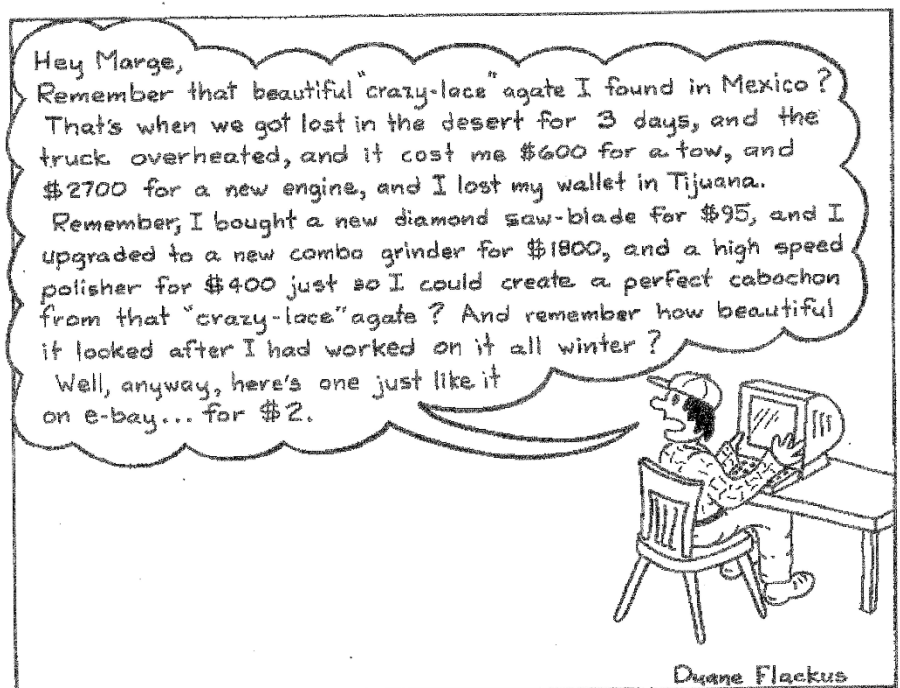 Hey Marge,
Remember that beautiful "crazy-lace" agate I found in Mexico?
That's when we got lost in the desert for 3 days, and the
truck overheated, and it cost me $600 for a tow, and
$2700 for a new engine, and I lost my wallet in Tijuana.
Remember, I bought a new diamond saw-blade for $95, and I
upgraded to a new combo grinder for $1800, and a high speed
polisher for $400 just so I could create a perfect cabochon
from that "crazy-lace" agate? And remember how beautiful
it looked after I had worked on it all winter?
Well, anyway, here's one just like it
on e-bay... for $2.
Duane Flackus